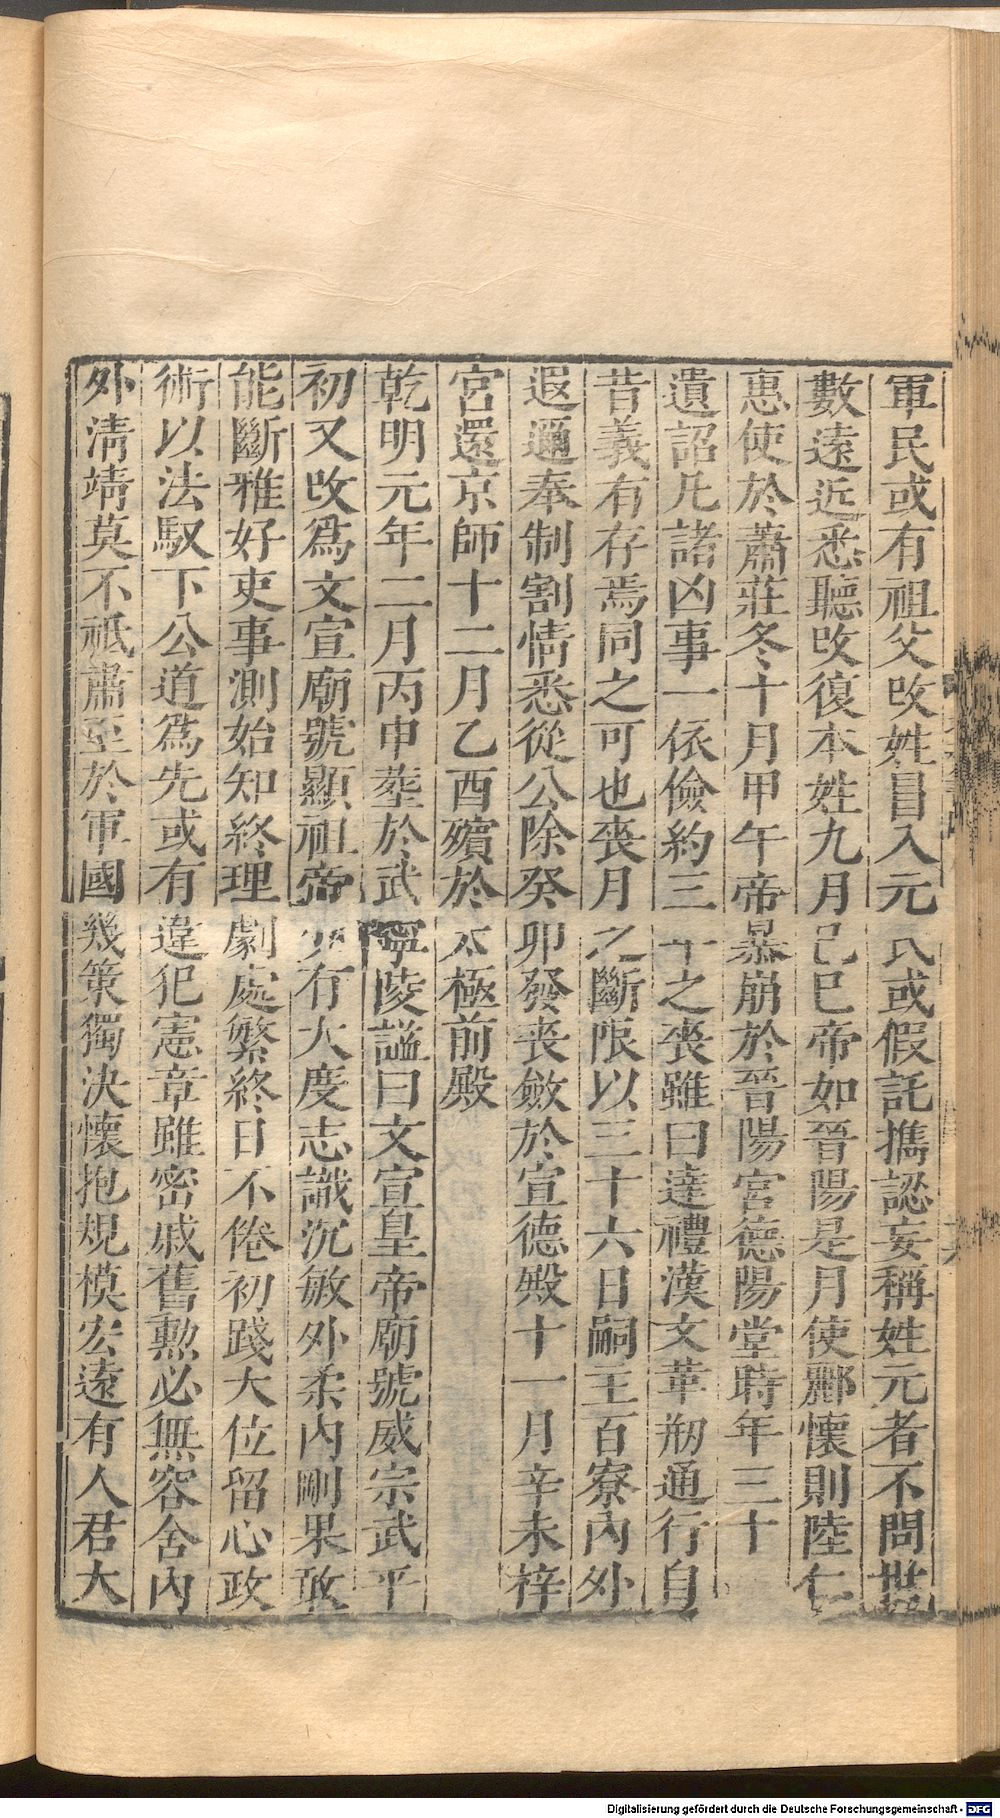 軍民或有祖父改姓冒入元氏或假託攜認妄稱姓元者不問世
數遠近悉聽改復本姓九月己巳帝如晉陽是月使酈懷則陸仁
惠使於蕭莊冬十月甲午帝暴崩於晉陽宮德陽堂時年三十
遺詔凡諸凶事一依儉約三十之喪雖曰達禮漢文革刱通行自
昔義有存焉同之可也喪月之斷限以三十六日嗣王百寮內外
遐邇奉制割情悉從公除癸卯發喪斂於宣德殿十一月辛未梓
宮還京師十二月乙酉殯於太極前殿
乾明元年二月丙申葬於武寧陵謚曰文宣皇帝廟號威宗武平
初又改爲文宣廟號顯祖帝少有大度志識沉敏外柔內剛果敢
能斷雅好吏事測始知終理劇處繁終日不倦初踐大位留心政
術以法馭下公道爲先或有違犯憲章雖密戚舊勲必無容舍內
外淸靖莫不祗肅至於軍國幾策獨決懷抱規模宏遠有人君大
Digitalisierung gefördert durch die Deutsche Forschungsgemeinschaft - DFG